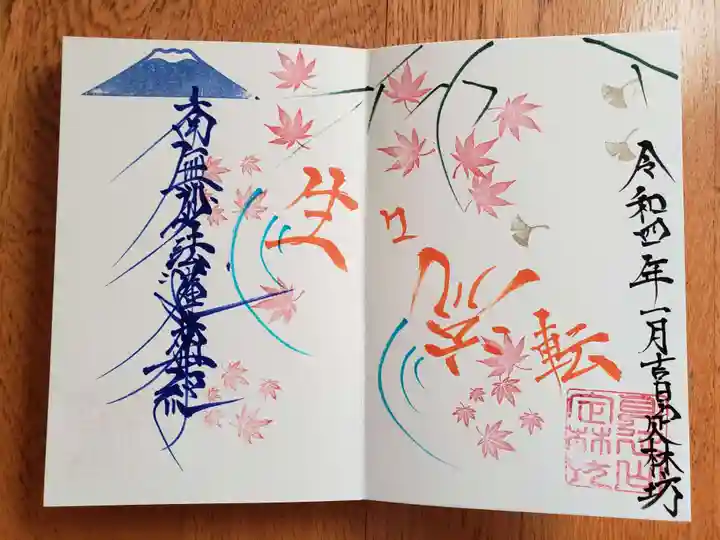 令和四年一月吉日定林坊
生々流転
南無妙法蓮華経
定林坊